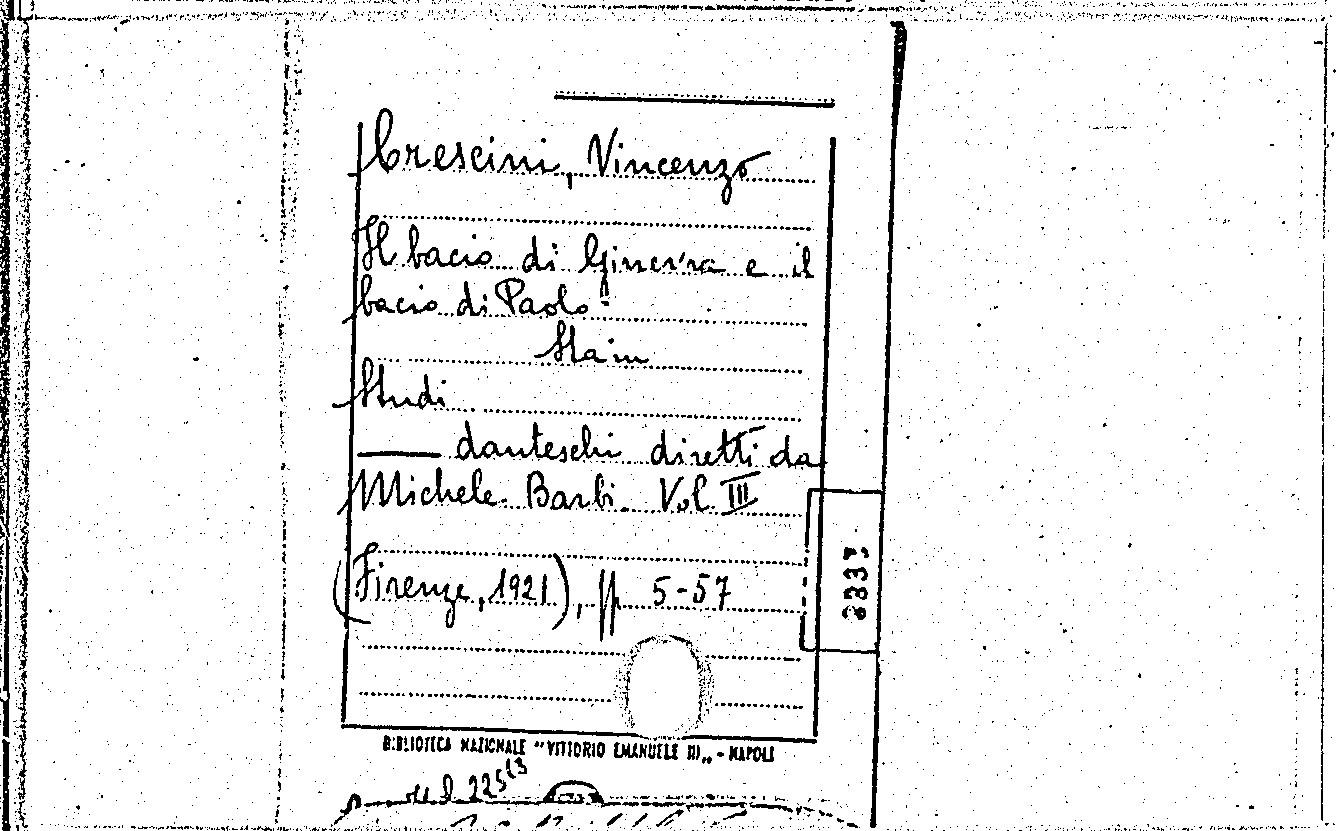 Crescini, Vincenzo
Il bacio di Ginevra e il
bacio di Paolo-
Sta in
Studi
danteschi diretti da
Michele Barbi. Vol. III
(Firenze, 1921), pp 5-57
BIBLIOTECA NAZIONALE "VITTORIO EMANUELE III„ - NAPOLI